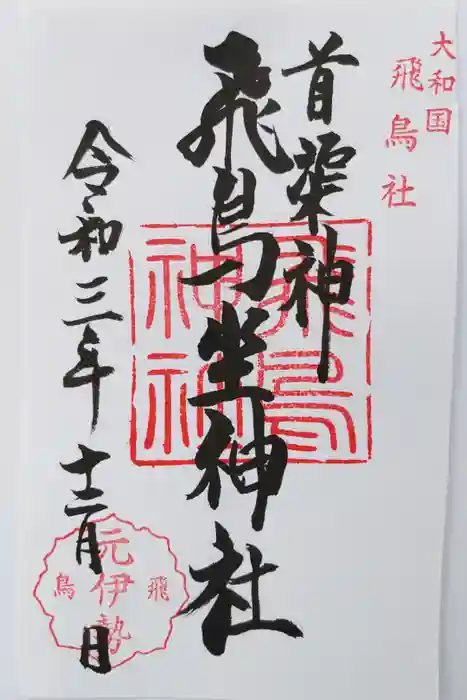 大和国
飛鳥社
首渠神
飛鳥坐神社
飛鳥
神社
令和三年十二月 日
飛鳥
元伊勢